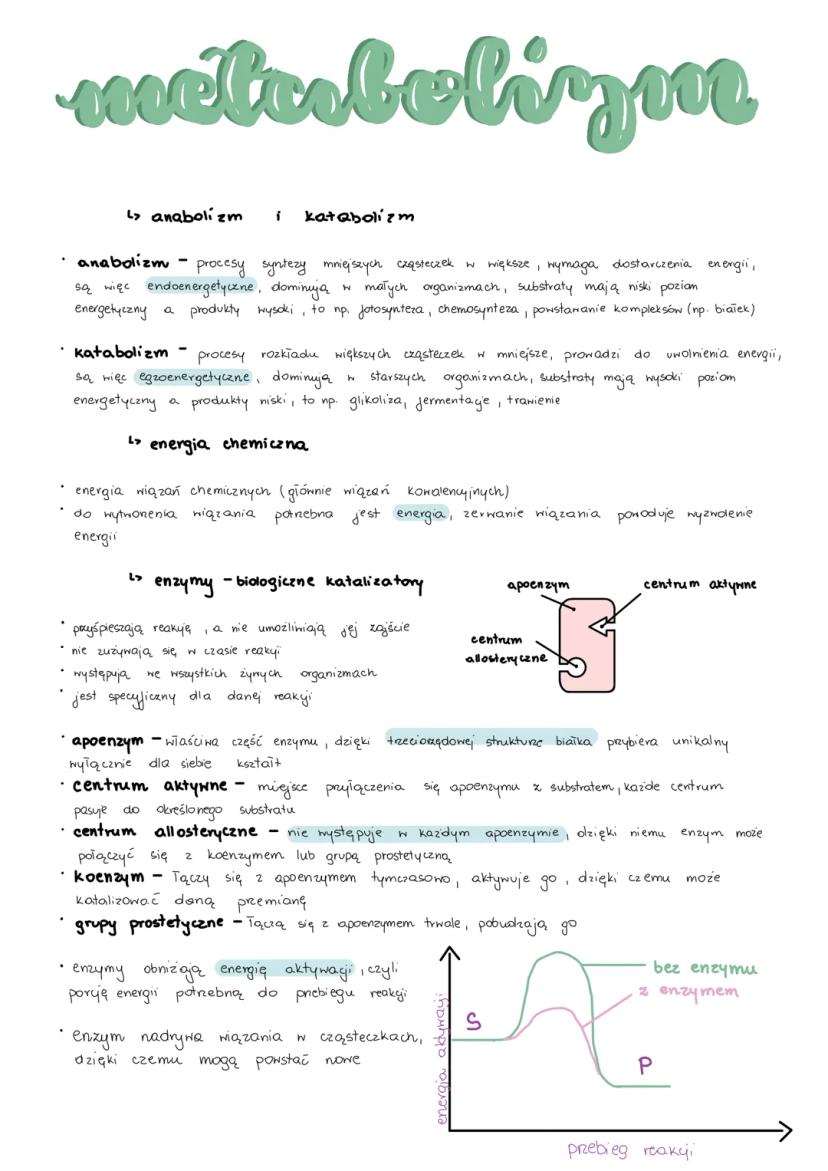 metabolizm
↳ anabolizm i katabolizm
• anabolizm – procesy syntezy mniejszych cząsteczek w większe, wymaga dostarczenia energii,
są więc endoenergetyczne, dominują w małych organizmach, substraty mają niski poziom
energetyczny a produkty wysoki, to np. fotosynteza, chemosynteza, powstawanie kompleksów (np. białek)
• katabolizm – procesy rozkładu większych cząsteczek w mniejsze, prowadzi do uwolnienia energii,
są więc egzoenergetyczne, dominują w starszych organizmach, substraty mają wysoki poziom
energetyczny a produkty niski, to np. glikoliza, fermentacje, trawienie
↳ energia chemiczna
• energia wiązań chemicznych (głównie wiązań kowalencyjnych)
• do wytworzenia wiązania potrzebna jest energia, zerwanie wiązania powoduje wyzwolenie
energii
↳ enzymy – biologiczne katalizatory
• przyśpieszają reakcję, a nie umożliwiają jej zajście
• nie zużywają się w czasie reakcji
• występują we wszystkich żywych organizmach
• jest specyficzny dla danej reakcji
apoenzym
centrum aktywne
centrum
allosteryczne
• apoenzym – właściwa część enzymu, dzięki trzeciorzędowej strukturze białka przybiera unikalny
wyłącznie dla siebie kształt
• centrum aktywne – miejsce przyłączenia się apoenzymu z substratem, każde centrum
pasuje do określonego substratu
• centrum allosteryczne – nie występuje w każdym apoenzymie, dzięki niemu enzym może
połączyć się z koenzymem lub grupą prostetyczną
• koenzym – łączy się z apoenzymem tymczasowo, aktywuje go, dzięki czemu może
katalizować daną przemianę
• grupy prostetyczne – łączą się z apoenzymem trwale, pobudzają go
• enzymy obniżają energię aktywacji, czyli
porcję energii potrzebną do przebiegu reakcji
• enzym nadrywa wiązania w cząsteczkach,
dzięki czemu mogą powstać nowe
bez enzymu
z enzymem
S
P
energia aktywacji
przebieg reakcji